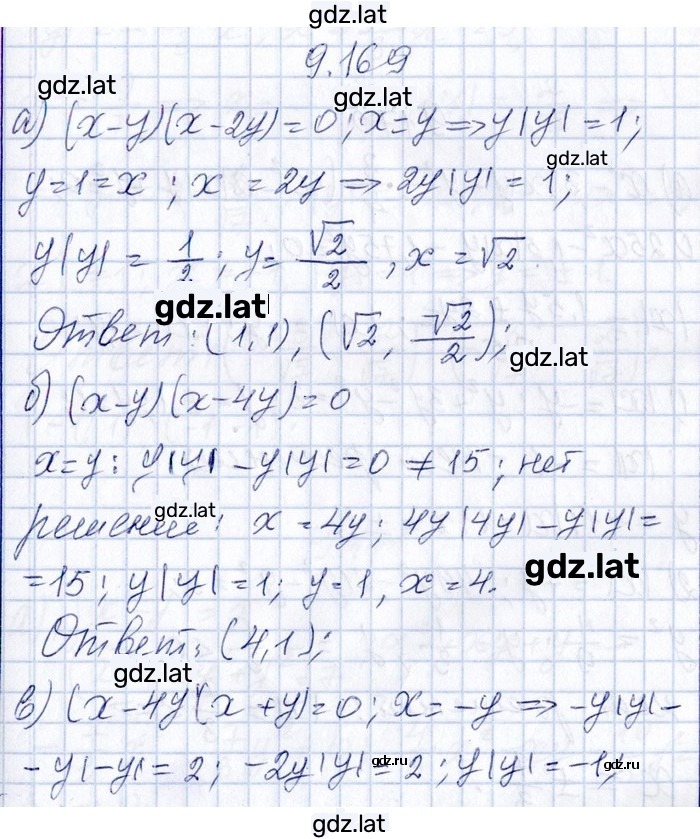 gdz.lat
9.169
gdz.lat
gdz.lat
а) (x-y)(x-2y)=0; x=y ⇒ y|y|=1;
gdz.lat
y=1=x; x=2y ⇒ 2y|y|=1;
y|y| = 1/2; y= √2/2, x=√2.
gdz.lat
Ответ: (1,1), (√2, √2/2);
gdz.lat
б) (x-y)(x-4y)=0
x=y: y|y| -y|y|=0 ≠ 15; нет
gdz.lat
решение: x=4y; 4y|4y|-y|y|=
gdz.lat
=15; y|y|=1; y=1, x=4.
Ответ: (4,1);
gdz.lat
в) (x-4y)(x+y)=0; x=-y ⇒ -y|y|-
-y|-y|=2; -2y|y|=2; y|y|=-1;
gdz.ru
gdz.ru
gdz.lat